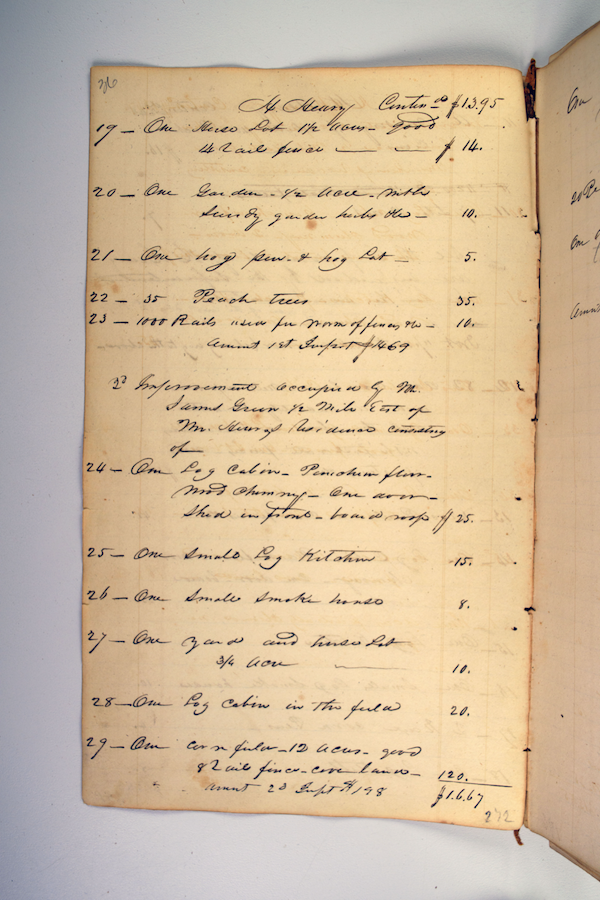 36
H. Henry Contind $13.95
19 – One Horse Lot 1½ acres – good
14 Rail fence — — $ 14.
20 – One Garden – ½ acre – with
Sundry garden herbs &c – 10.
21 – One hog pen – & hog Lot – 5.
22 – 35 Peach trees 35.
23 – 1000 Rails used for worm of fences &c – 10.
Amount 1st Impt $1469
2d Improvement occupied by Mr.
James Green ½ Mile East of
Mr. Henry's Residence consisting
of –
24 – One Log Cabin – Puncheon floor –
mud chimney – One door –
Shed in front – board roof $ 25.
25 – One Small Log Kitchen 15.
26 – One Small Smoke house 8.
27 – One yard and horse Lot
3/4 acre — 10.
28 – One Log cabin in the field 20.
29 – One corn field – 12 acres – good
8 Rail fence – cove land – 120.
" amnt 2d Impt $198 $1.6.67
272
One
20 Pe
One
Amnt